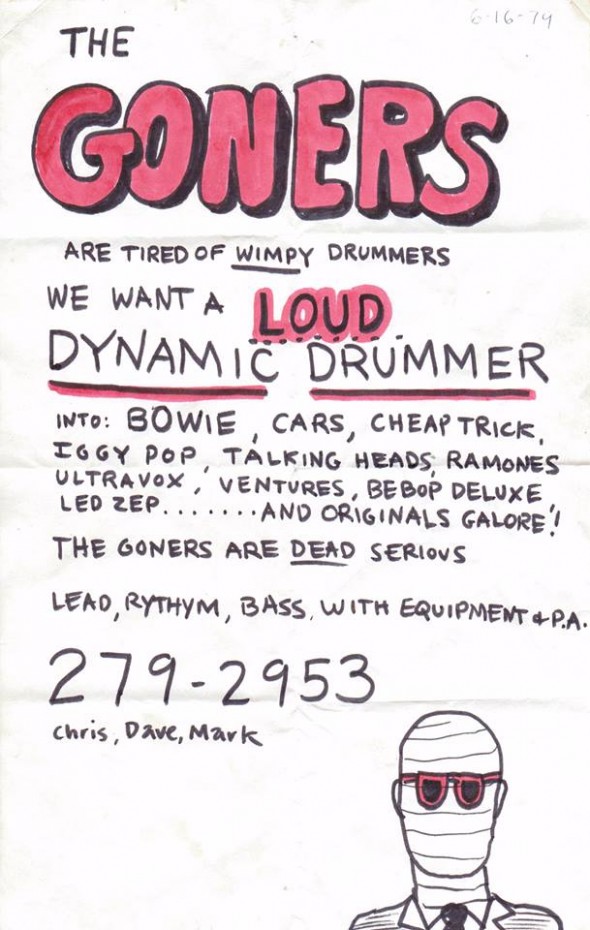 6-16-79
THE
GONERS
ARE TIRED OF WIMPY DRUMMERS
WE WANT A LOUD
DYNAMIC DRUMMER
INTO: BOWIE, CARS, CHEAP TRICK,
IGGY POP, TALKING HEADS, RAMONES
ULTRAVOX, VENTURES, BEBOP DELUXE,
LED ZEP........AND ORIGINALS GALORE!
THE GONERS ARE DEAD SERIOUS
LEAD, RYTHYM, BASS, WITH EQUIPMENT & P.A.
279-2953
chris, Dave, Mark